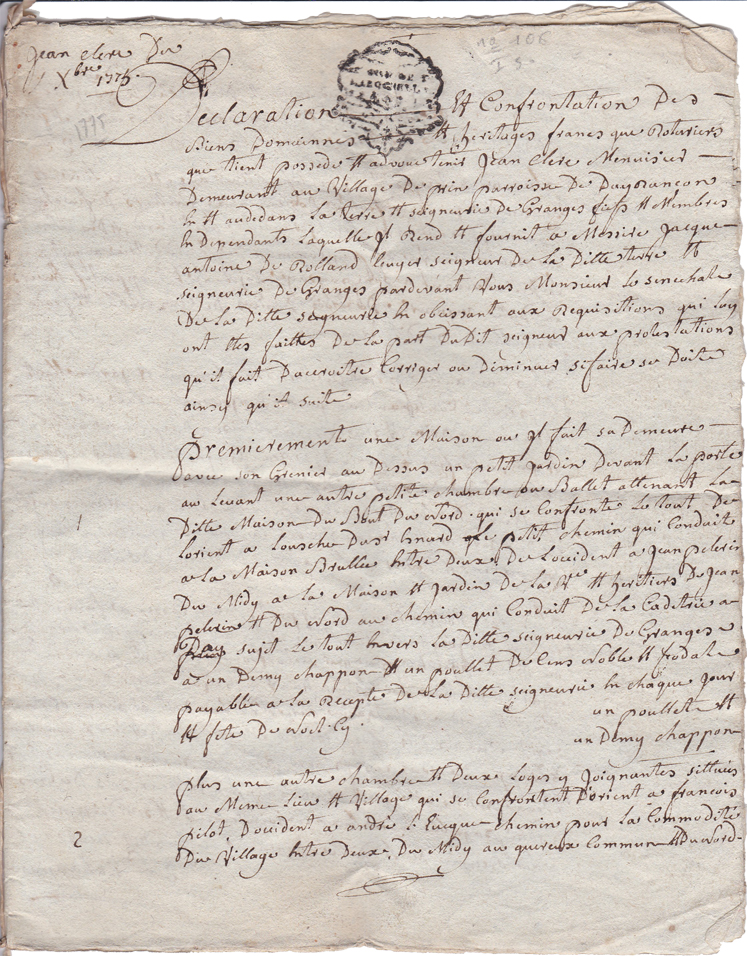 Jean Clerc Du
Xbre 1775
1775
no 106
Declaration Et Confrontation Des
Biens Domainnes Et heritages francs que Roturiers
que tient possede Et advoue tenir Jean Clerc Menuisier
Demeurant au Village De prin parroisse De
En Et audedans La terre Et seigneurie De Granges fiefs Et Membres
En Dependants Laquelle Il Rend Et fournit a Messire Jacque
antoine De Rolland Ecuyer seigneur De La Ditte terre Et
seigneurie De Granges pardevant Vous Monsieur Le senechale
De La Ditte seigneurie En obeissant aux Requisitions qui Luy
ont Etes faittes De La part Du Dit seigneur aux protestations
qu'il fait Daccroitre Corriger ou Diminuer si faire se Doite
ainsy qu'il suite
premierement une Maison ou Il fait sa Demeure
avec son Grenier au Dessus un petit Jardin Devant La porte
au Levant une autre petite chambre ou Ballet attenant La
1
Ditte Maison Du Bout Du Nord qui se Confronte Le tout De
Lorient a Lousche Du Sr Le petit chemin qui Conduit
a La Maison Brullee Entre Deux De Loccident a Jean pelerin
Du Midy a La Maison Et Jardin De La Ve Et heritiers De Jean
pelerin Et Du Nord au chemin qui Conduit De La a
sujet Le tout Envers La Ditte seigneurie De Granges
a un Demy chappon Et un poullet De Cens Noble Et feodale
payable a La Recepte De La Ditte seigneurie En chaque Jour
Et fete De Noel Cy un poullet Et
un Demy chappon
plus une autre chambre Et Deux Loges y Joignantes sittuees
au Meme Lieu Et Village qui se Confrontent D'orient a francois
pilot, Doccident a andré chemin pour La Commodité
2
Du Village Entre Deux, Du Midy au quereux Commun Et Du Nord